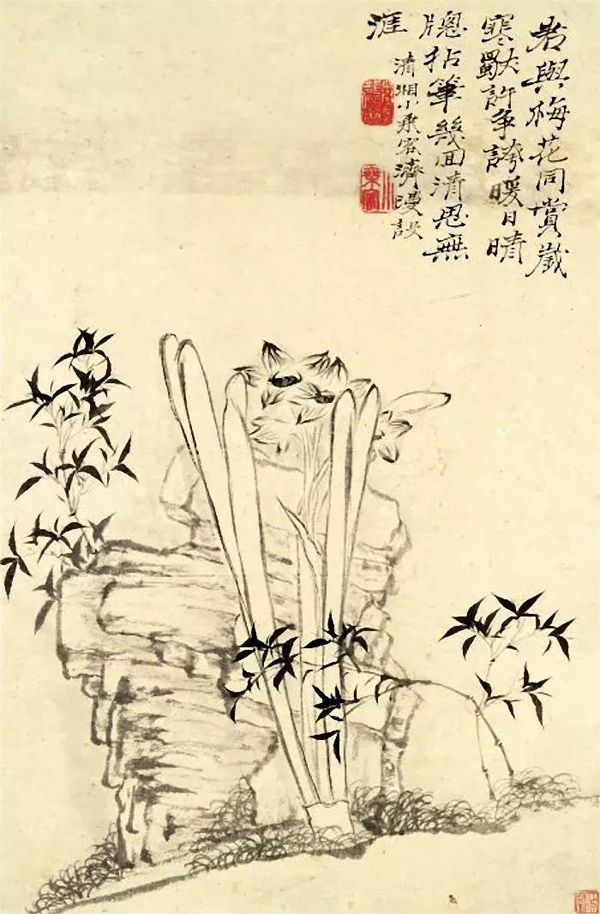 君與梅花同賞歲
寒獨許爭誇暖日晴
牕拈筆幾回清思無
涯
清湘小乘客濟漫設